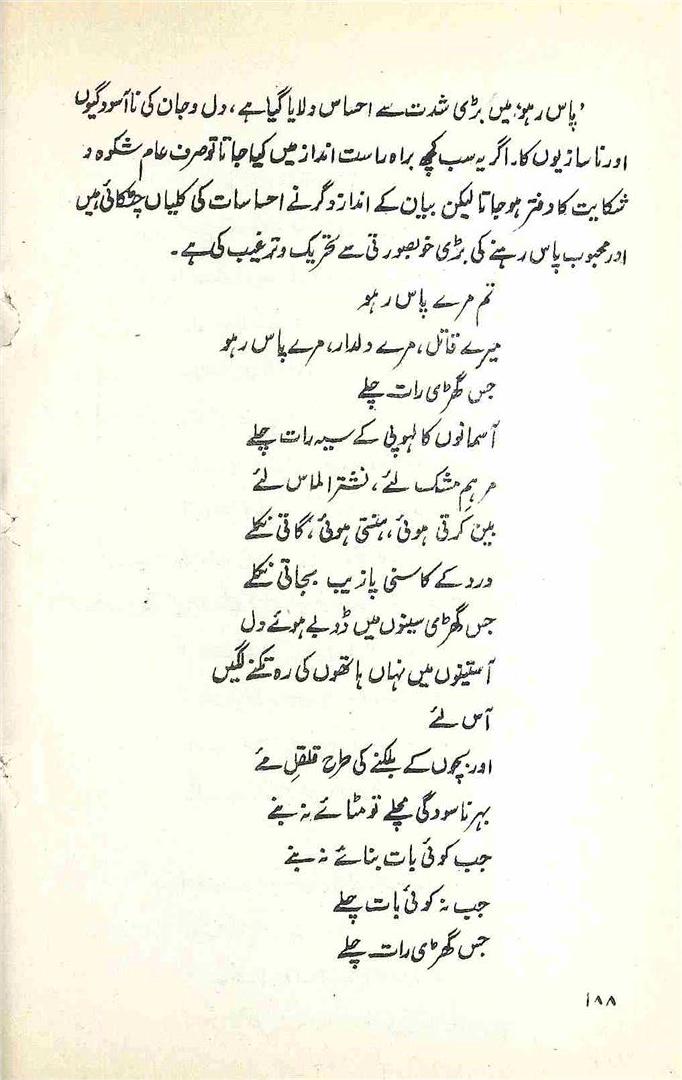 ’پاس رہو‘ میں بڑی شدت سے احساس دلایا گیا ہے، دل و جان کی ناآسودگیوں
اور ناسازیوں کا۔ اگر یہ سب کچھ براہ راست انداز میں کیا جاتا تو صرف عام شکوہ و
شکایت کا دفتر ہو جاتا لیکن بیان کے انداز دگر نے احساسات کی کلیاں چٹکائی ہیں
اور محبوب پاس رہنے کی بڑی خوبصورتی سے تحریک و ترغیب کی ہے۔
تم مرے پاس رہو
میرے قاتل، مرے دلدار، مرے پاس رہو
جس گھڑی رات چلے
آسمانوں کا لہو پی کے سیہ رات چلے
مرہمِ مشک لئے، نشتر الماس لئے
بین کرتی ہوئی، ہنستی ہوئی، گاتی نکلے
درد کے کاسنی پازیب بجاتی نکلے
جس گھڑی سینوں میں ڈوبے ہوئے دل
آستینوں میں نہاں ہاتھوں کی رہ تکنے لگیں
آس لئے
اور بچوں کے بلکنے کی طرح قلقلِ مے
بہر ناسودگی مچلے تو منائے نہ بنے
جب کوئی بات بنائے نہ بنے
جب نہ کوئی بات چلے
جس گھڑی رات چلے
۱۸۸